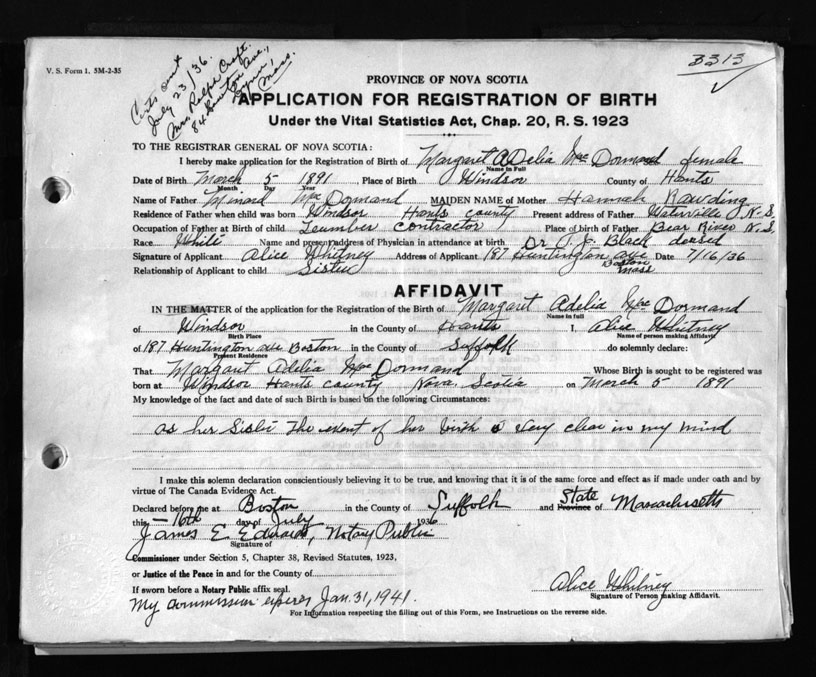 V. S. Form 1. 5M-2-35
Certs sent
July 23/36.
Mrs Ralph Craft.
84 Ave.,
Mass.
3313
PROVINCE OF NOVA SCOTIA
APPLICATION FOR REGISTRATION OF BIRTH
Under the Vital Statistics Act, Chap. 20, R. S. 1923
TO THE REGISTRAR GENERAL OF NOVA SCOTIA:
I hereby make application for the Registration of Birth of Margaret Adelia Mac Dormand female
Name in Full
Date of Birth March 5 1891 Place of Birth Windsor County of Hants
Month Day Year
Name of Father Minard Mac Dormand MAIDEN NAME of Mother Hannah Rawding
Residence of Father when child was born Windsor Hants county Present address of Father Waterville N.S.
Occupation of Father at Birth of child Lumber contractor Place of birth of Father Bear River N.S.
Race White Name and present address of Physician in attendance at birth Dr J. B. Black
Signature of Applicant Alice Whitney Address of Applicant 187 Huntington ave Date 7/16/36
Boston
Mass
Relationship of Applicant to child Sister
AFFIDAVIT
IN THE MATTER of the application for the Registration of the Birth of Margaret Adelia Mac Dormand
Name in full
of Windsor in the County of Hants I, Alice Whitney
Birth Place Name of person making Affidavit
of 187 Huntington ave Boston in the County of Suffolk do solemnly declare:
Present Residence
That Margaret Adelia Mac Dormand Whose Birth is sought to be registered was
born at Windsor Hants county Nova Scotia on March 5 1891
My knowledge of the fact and date of such Birth is based on the following Circumstances:
as her Siste The event of her birth is very clear in my mind
I make this solemn declaration conscientiously believing it to be true, and knowing that it is of the same force and effect as if made under oath and by
virtue of The Canada Evidence Act.
Declared before me at Boston in the County of Suffolk and State Province of Massachusetts
this 16th day of July 1936
James E. Edwards, Notary Public
Signature of
Commissioner under Section 5, Chapter 38, Revised Statutes, 1923,
or Justice of the Peace in and for the County of
If sworn before a Notary Public affix seal.
Alice Whitney
My commission expires Jan. 31, 1941.
Signature of Person making Affidavit.
For Information respecting the filling out of this Form, see Instructions on the reverse side.